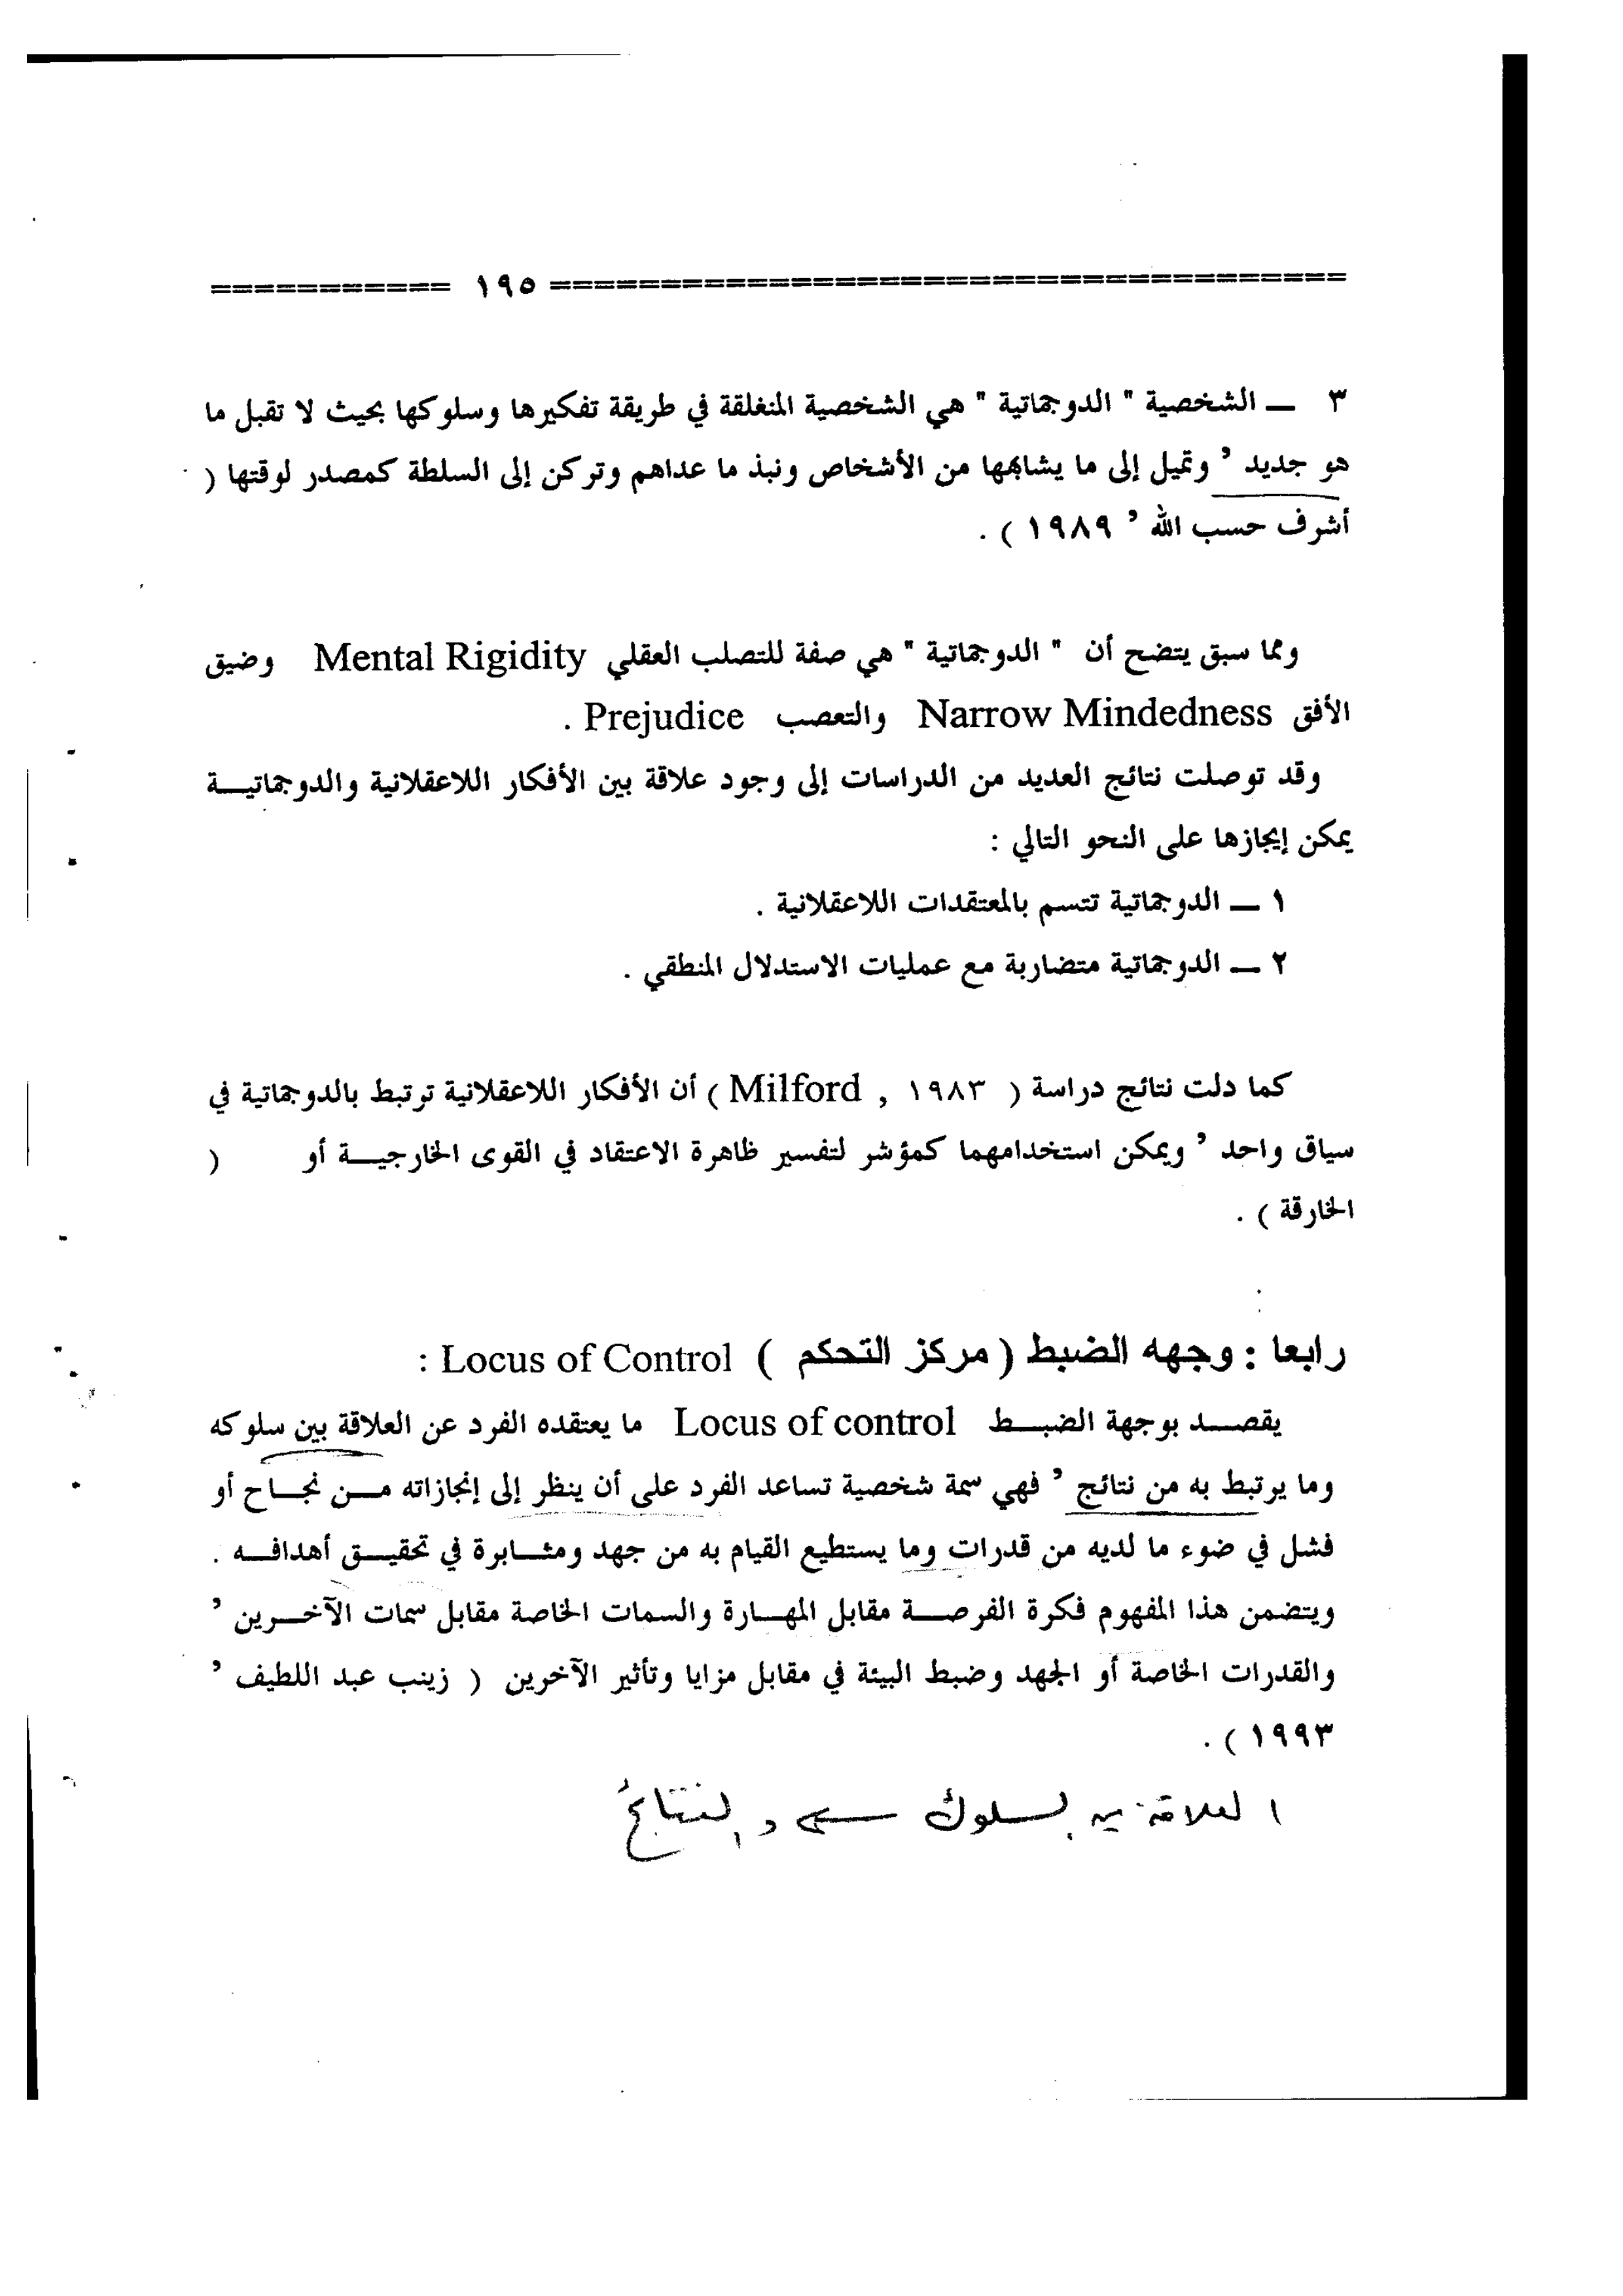 =========== ١٩٥ =====================================
٣ ــ الشخصية " الدوجماتية " هي الشخصية المنغلقة في طريقة تفكيرها وسلوكها بحيث لا تقبل ما
هو جديد ’ وتميل إلى ما يشابهها من الأشخاص ونبذ ما عداهم وتركن إلى السلطة كمصدر لوقتها (
أشرف حسب الله ’ ١٩٨٩ ) .
ومما سبق يتضح أن " الدوجماتية " هي صفة للتصلب العقلي Mental Rigidity وضيق
الأفق Narrow Mindedness والتعصب Prejudice .
وقد توصلت نتائج العديد من الدراسات إلى وجود علاقة بين الأفكار اللاعقلانية والدوجماتيــة
يمكن إيجازها على النحو التالي :
١ ــ الدوجماتية تتسم بالمعتقدات اللاعقلانية .
٢ ــ الدوجماتية متضاربة مع عمليات الاستدلال المنطقي .
كما دلت نتائج دراسة ( Milford , ١٩٨٣ ) أن الأفكار اللاعقلانية ترتبط بالدوجماتية في
سياق واحد ’ ويمكن استخدامهما كمؤشر لتفسير ظاهرة الاعتقاد في القوى الخارجيــة أو (
الخارقة ) .
رابعا : وجهه الضبط ( مركز التحكم ) Locus of Control :
يقصــد بوجهة الضبــط Locus of control ما يعتقده الفرد عن العلاقة بين سلوكه
وما يرتبط به من نتائج ’ فهي سمة شخصية تساعد الفرد على أن ينظر إلى إنجازاته مــن نجــاح أو
فشل في ضوء ما لديه من قدرات وما يستطيع القيام به من جهد ومثــابرة في تحقيــق أهدافــه .
ويتضمن هذا المفهوم فكرة الفرصــة مقابل المهــارة والسمات الخاصة مقابل سمات الآخــرين ’
والقدرات الخاصة أو الجهد وضبط البيئة في مقابل مزايا وتأثير الآخرين ( زينب عبد اللطيف ’
١٩٩٣ ) .
العلاقة بين السلوك ← والنتائج